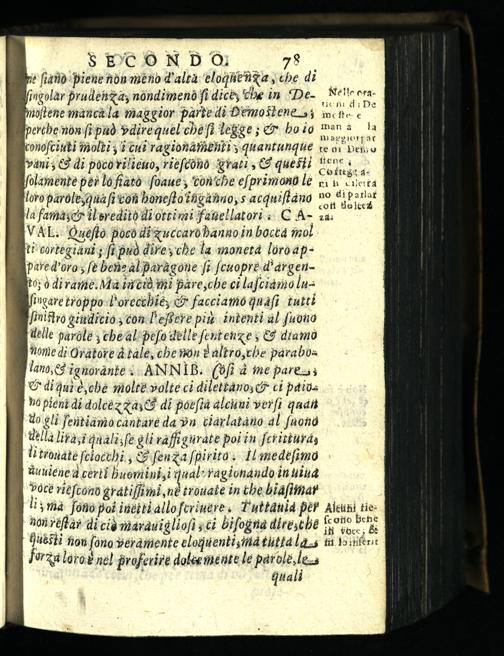 SECONDO. 78
ne siano piene non meno d'alta eloquenza, che di
singolar prudenza, nondimeno si dice, che in De-
mostene manca la maggior parte di Demostene,
perche non si può vdire quel che si legge; & ho io
conosciuti molti, i cui ragionamenti, quantunque
vani, & di poco rilieuo, riescono grati, & questi
solamente per lo fiato soaue, con che esprimono le
loro parole, quasi con honesto inganno, s'acquistano
la fama, & il credito di ottimi fauellatori. CA-
VAL. Questo poco di zuccaro hanno in bocca mol
ti cortegiani; si può dire, che la moneta loro ap-
pare d'oro, se bene al paragone si scuopre d'argen-
to, o di rame. Ma in ciò mi pare, che ci lasciamo lu-
singare troppo l'orecchie, & facciamo quasi tutti
sinistro giudicio, con l'essere più intenti al suono
delle parole, che al peso delle sentenze, & diamo
nome di Oratore à tale, che non è altro, che parabo-
lano, & ignorante. ANNIB. Così à me pare,
& di qui è, che molte volte ci dilettano, & ci paio-
no pieni di dolcezza, & di poesia alcuni versi quan
do gli sentiamo cantare da vn ciarlatano al suono
della lira, i quali, se gli raffigurate poi in scrittura,
li trouate sciocchi, & senza spirito. Il medesimo
auuiene à certi huomini, i qual' ragionando in uiua
voce riescono gratissimi, ne trouate in che biasimar
li; ma sono poi inetti allo scriuere. Tuttauia per
non restar di ciò marauigliosi, ci bisogna dire, che
questi non sono veramente eloquenti, ma tutta la
forza loro è nel proferire dolcemente le parole, le
quali
Nelle ora-
tioni di De
mostene
manca la
maggior par
te di Demo
stene.
Cortegia-
ni
no di parlar
con dolcez
za.
Alcuni rie-
scono bene
in voce, &